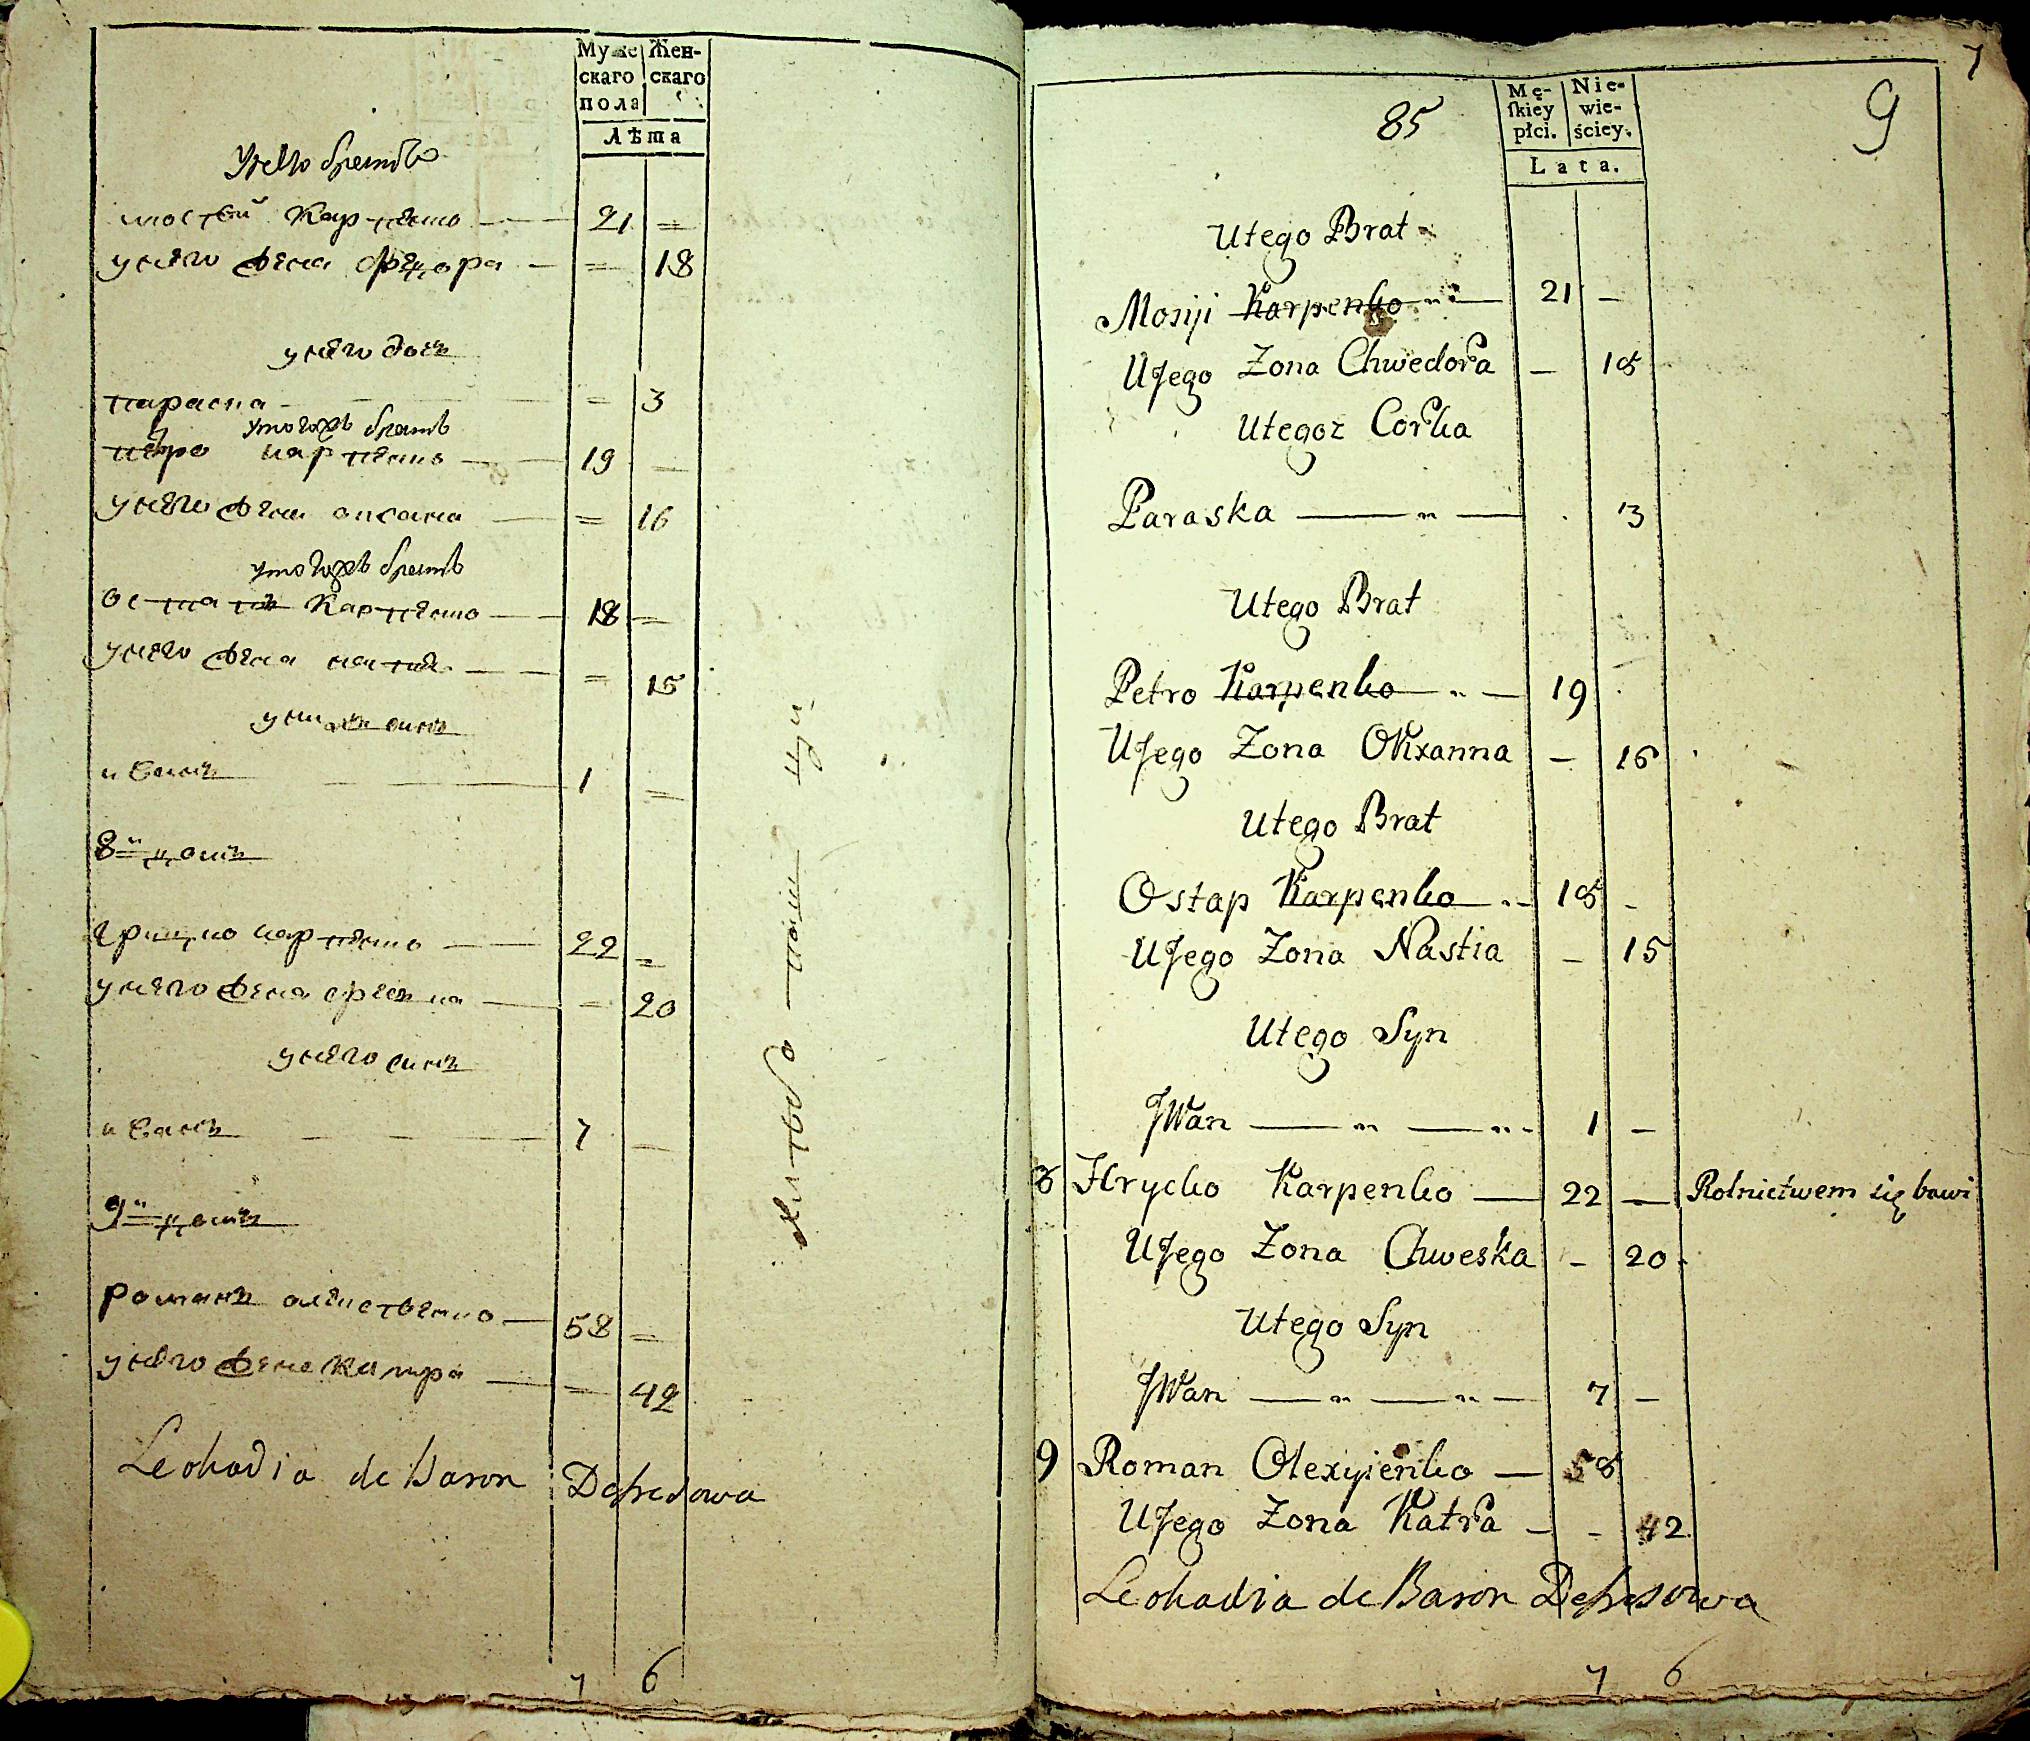 Муже Жен-
скаго скаго
пола
Лѣта
Унего братъ
мосѣй Карпенко — 21 =
унего жена фѣдора — = 18
унего дочь
параска — = 3
утогожъ братъ
пѣтро карпенко — 19 —
унего жена оксана — = 16
утогожъ братъ
остапъ Карпенко — 18 =
унего жена настя — = 15
унихъ синъ
иванъ — 1 =
8й домъ
грицко карпенко — 22 =
унего жена — = 20
унего синъ
иванъ — 7 —
9й домъ
романъ — 58 =
унего жена катра — = 42
Leokadia de Baron Depresowa
7 6
7
85
9
Mę- Nie-
ſkiey wie-
płci. ściey.
Lata.
Utego Brat
Mosiji Karpenko — 21 —
UJego Zona Chwedora — 18
Utegoż Corka
Paraska — 3
Utego Brat
Petro Karpenko — 19
UJego Zona OKxanna — 16
Utego Brat
Ostap Karpenko 18 -
UJego Zona Nastia — 15
Utego Syn
JWan — 1 —
8 Hrycko Karpenko — 22 — Rolnictwem się bawi
UJego Zona Chweska - 20
Utego Syn
JWan — 7 —
9 Roman Olexyienko — 58
UJego Zona Katra — - 42
Leokadia de Baron Depresowa
7 6